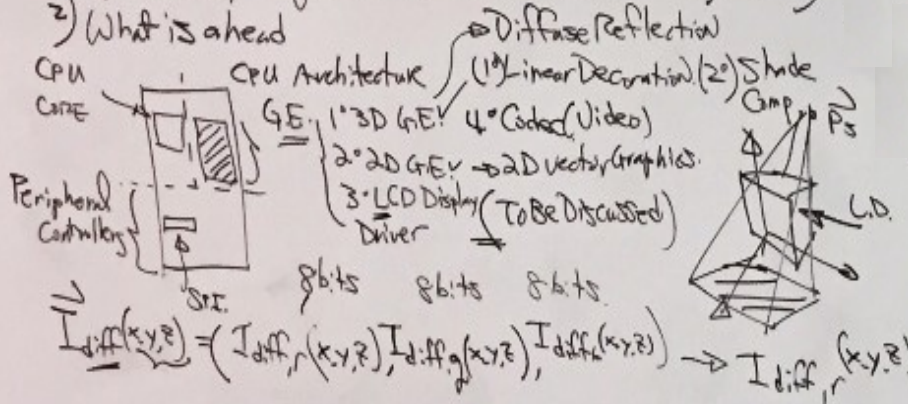 2) What is ahead
→ Diffuse Reflection
CPU Architecture
(1°) Linear Decoration. (2°) Shade Comp.
CPU
CORE
G.E. 1° 3D G.E. 4° Coded (Video)
2° 2D G.E. → 2D Vector Graphics.
3° LCD Display Driver (To Be Discussed)
Peripheral
Controllers
SPI.
Ps
L.D.
8bits 8bits 8bits
I diff(x,y,z) = (I diff,r(x,y,z), I diff,g(x,y,z), I diff,b(x,y,z)) → I diff,r(x,y,z)